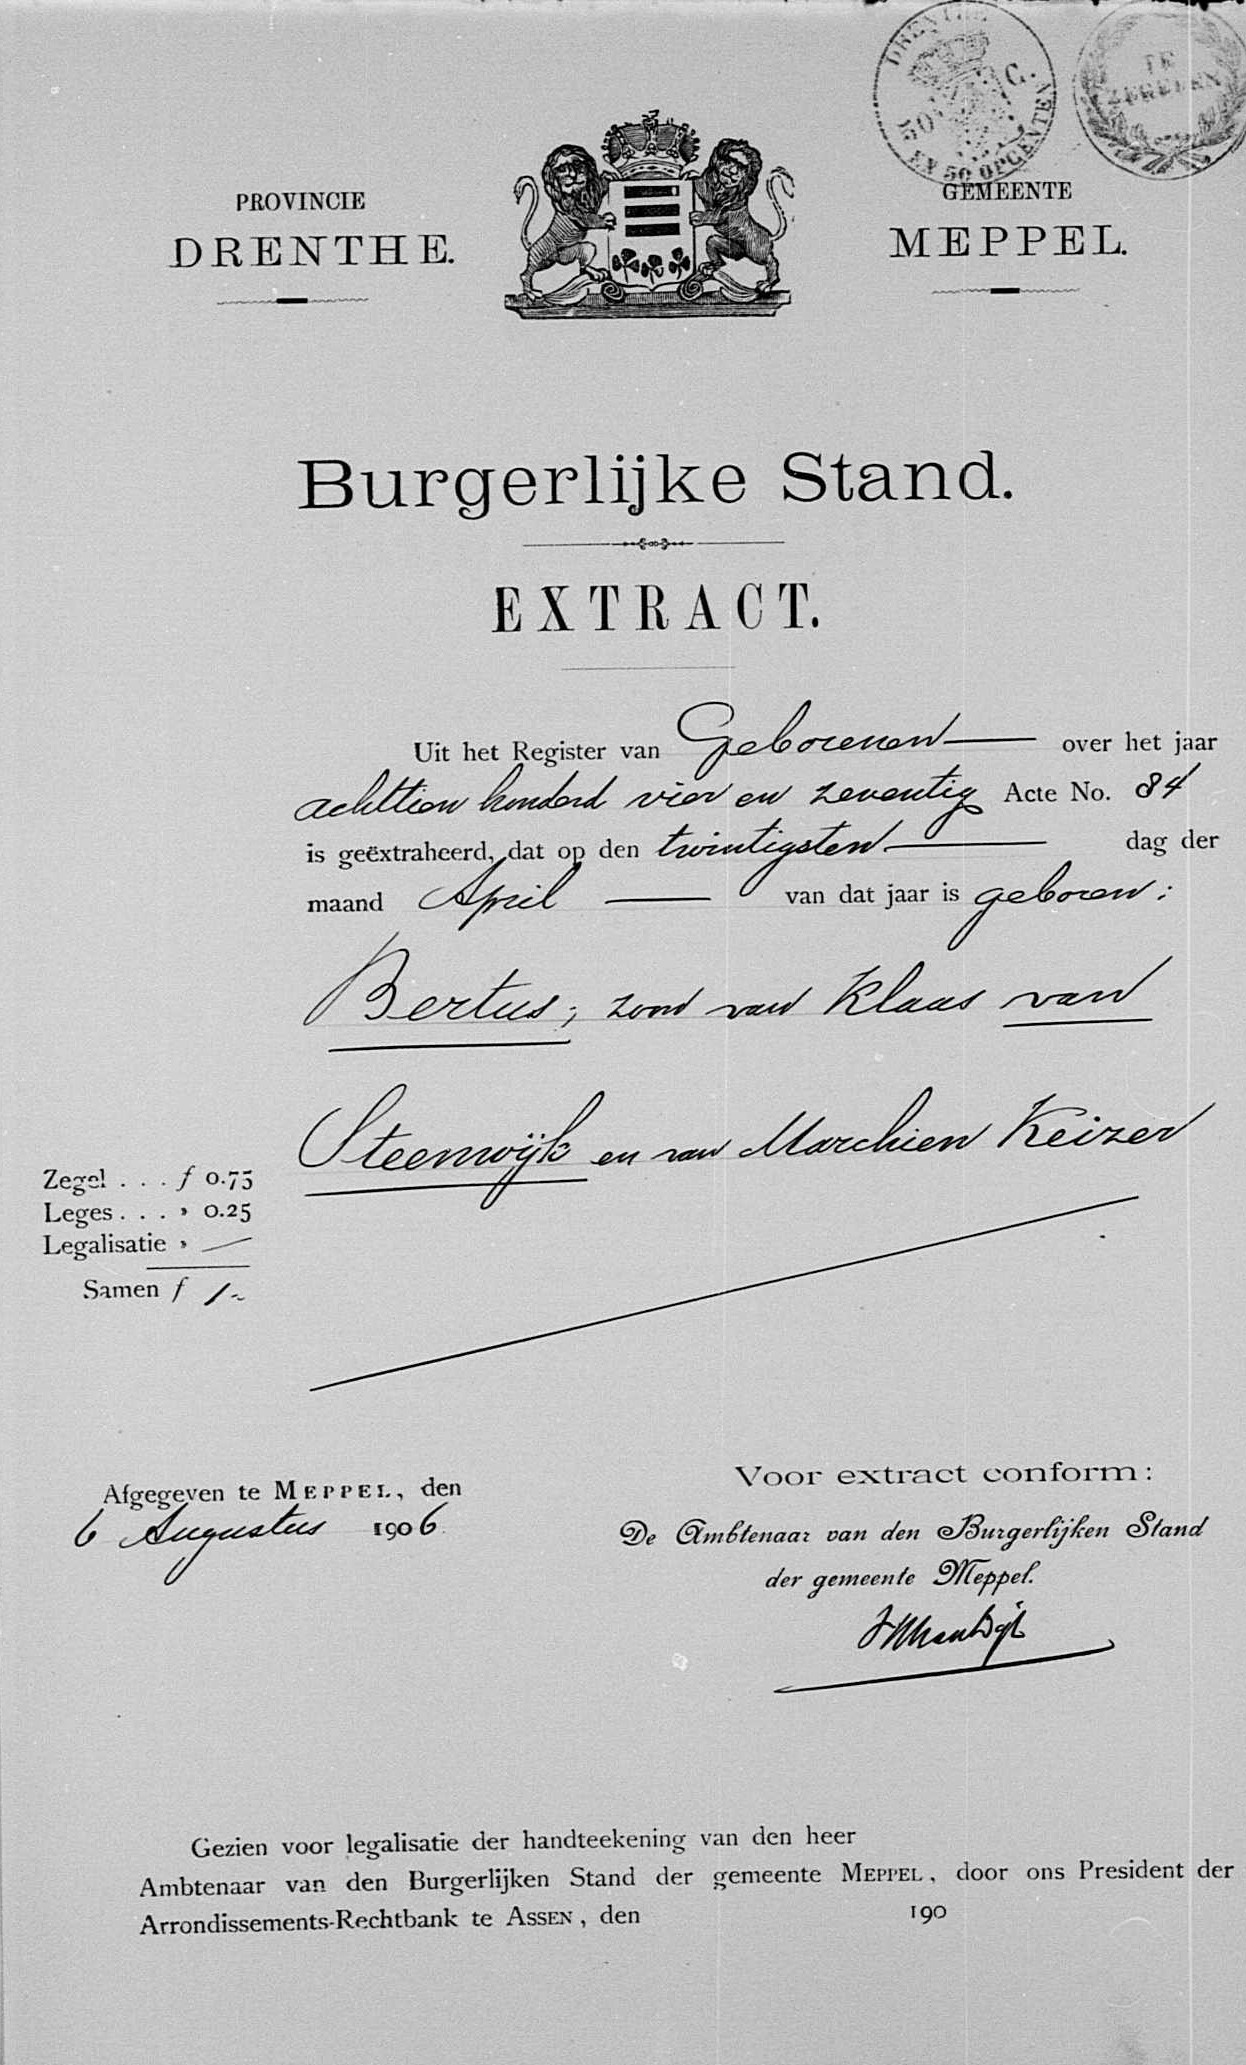 DRENTHE
50 C.
EN 50 OPCENTEN
TE
ZEGELEN
PROVINCIE
DRENTHE.
GEMEENTE
MEPPEL.
Burgerlijke Stand.
EXTRACT.
Uit het Register van Geborenen over het jaar
achttien honderd vier en zeventig Acte No. 84
is geëxtraheerd, dat op den twintigsten dag der
maand April van dat jaar is geboren:
Bertus, zoon van Klaas van
Steenwijk en van Marchien Keizer
Zegel . . . f 0.75
Leges . . . » 0.25
Legalisatie » —
Samen f 1.-
Afgegeven te MEPPEL, den
6 Augustus 1906
Voor extract conform:
De Ambtenaar van den Burgerlijken Stand
der gemeente Meppel.
Gezien voor legalisatie der handteekening van den heer
Ambtenaar van den Burgerlijken Stand der gemeente MEPPEL, door ons President der
Arrondissements-Rechtbank te ASSEN, den 190